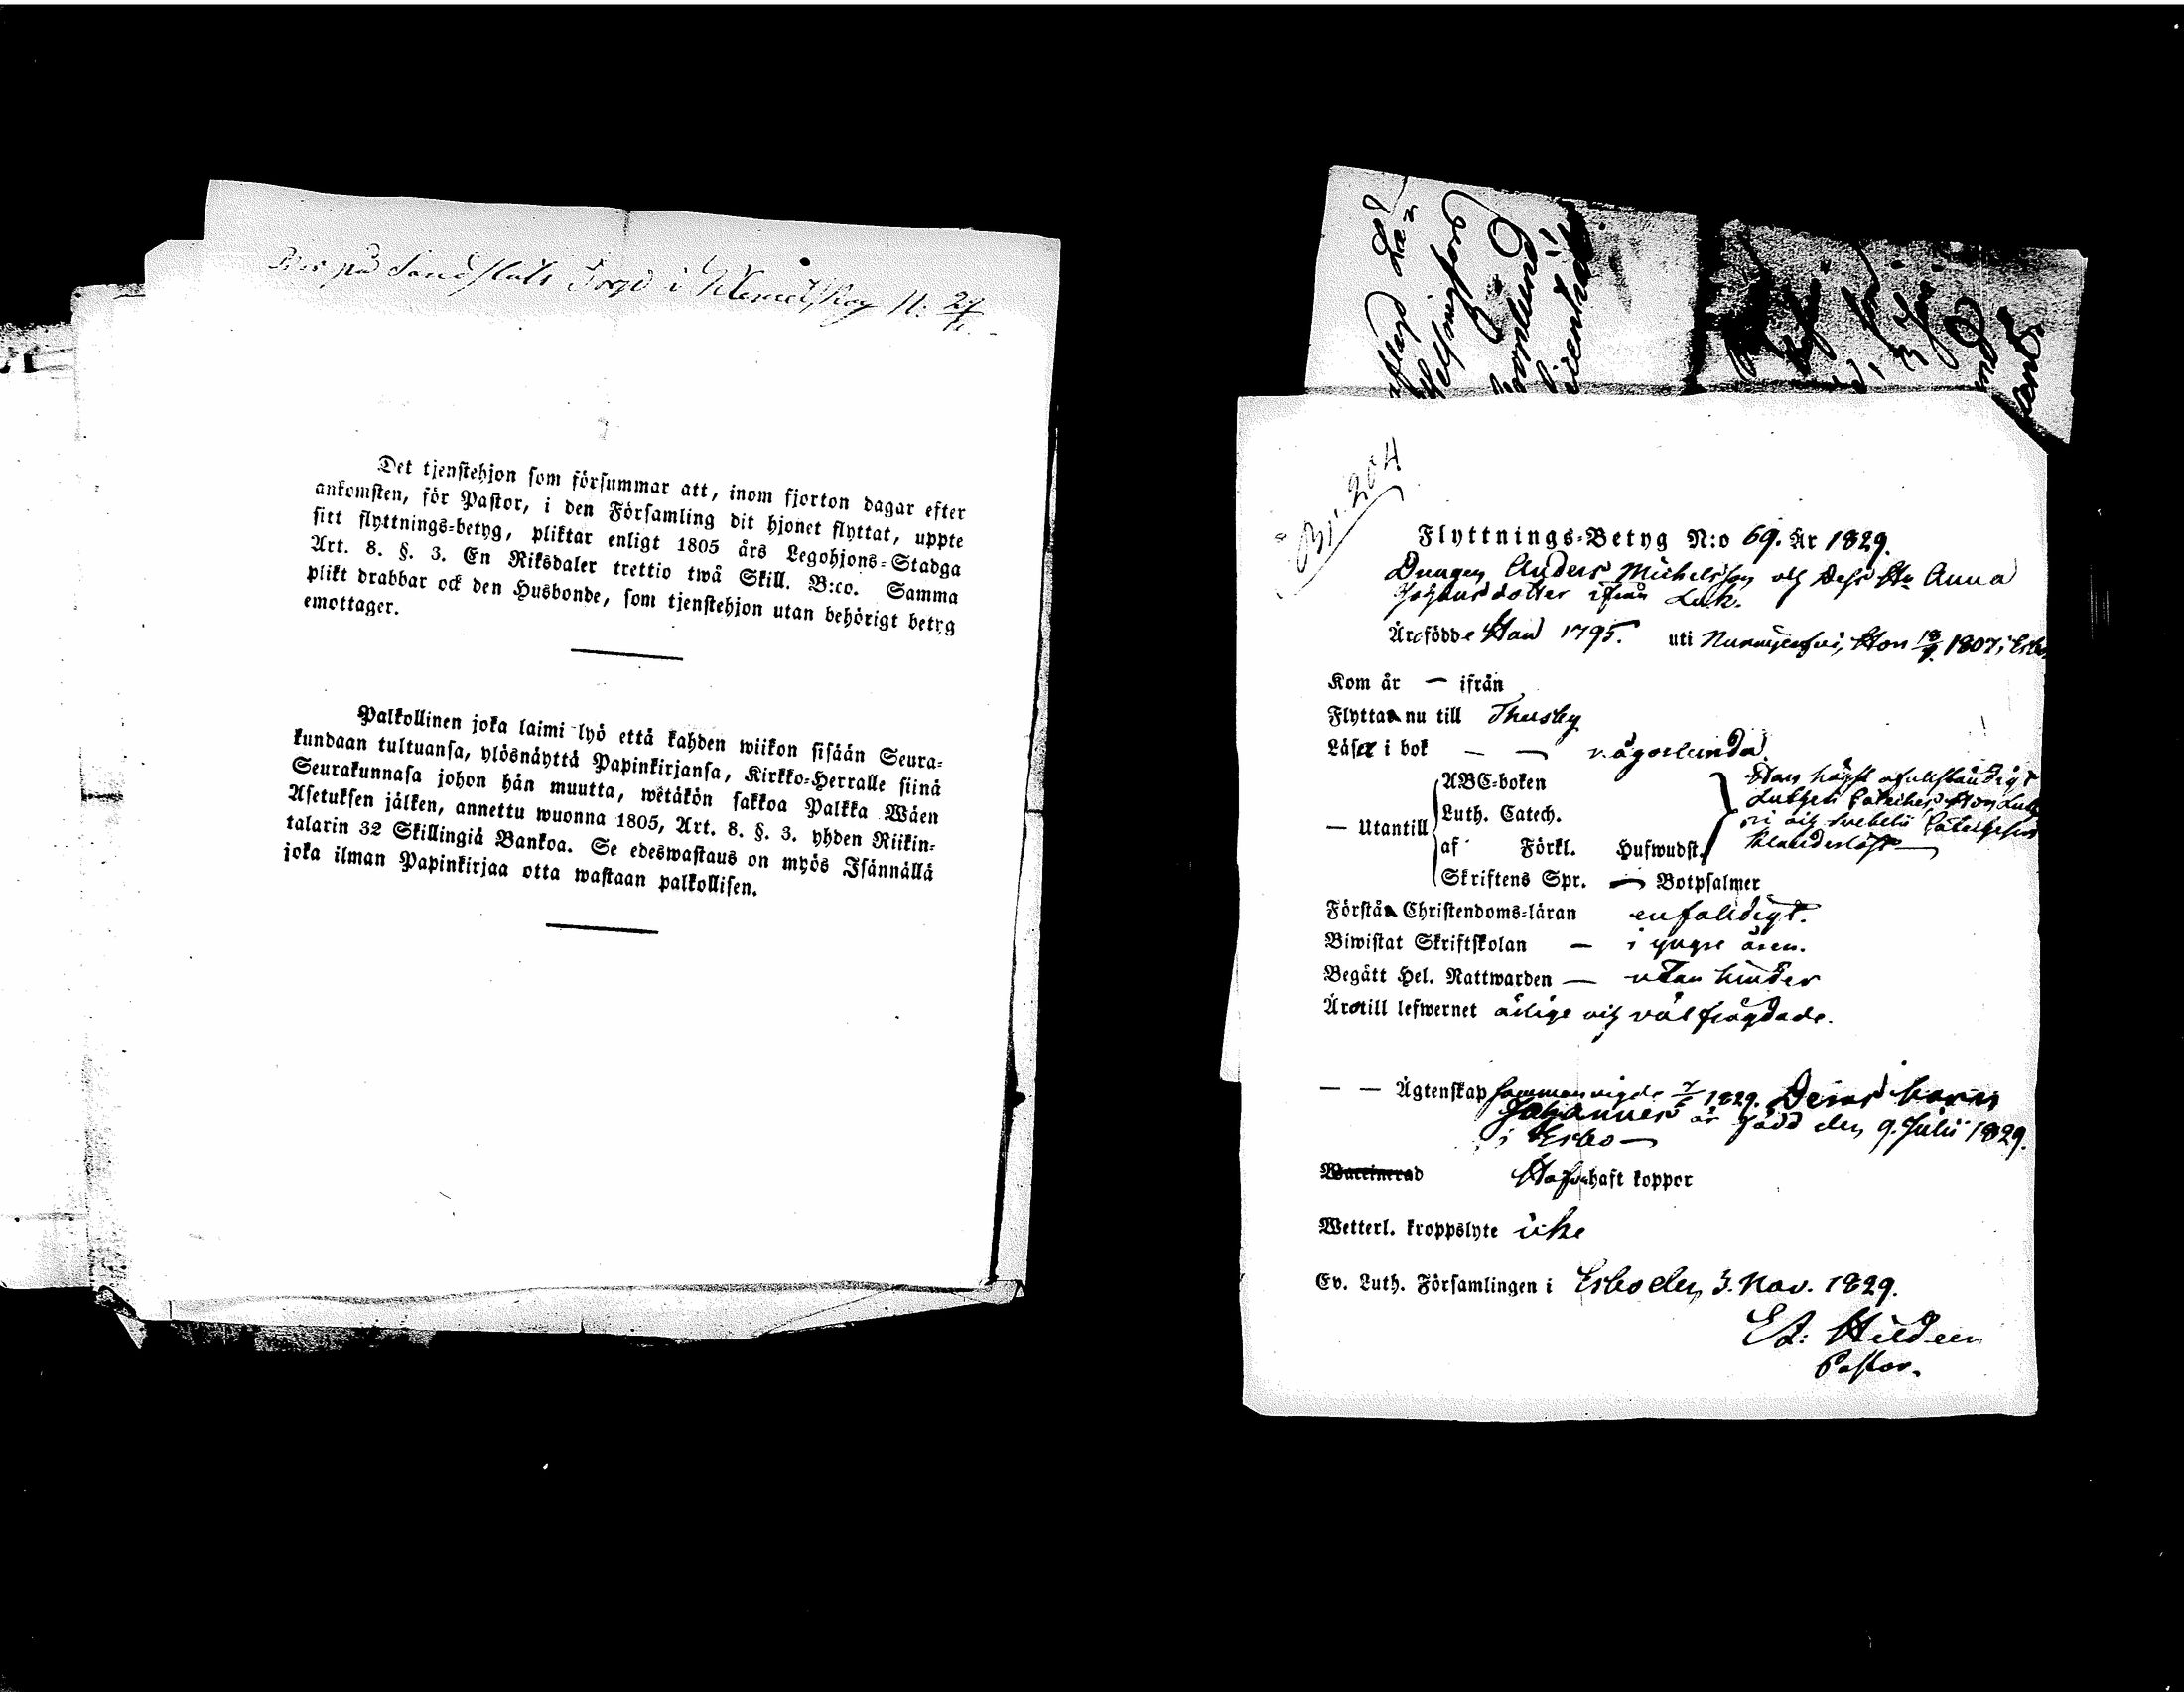 Bor på Sandslåts Torp i N:
Det tjenstehjon som försummar att, inom fjorton dagar efter
ankomsten, för Pastor, i den Församling dit hjonet flyttat, uppte
sitt flyttnings-betyg, pliktar enligt 1805 års Legohjons-Stadga
Art. 8. §. 3. En Riksdaler trettio twå Skill. B:co. Samma
plikt drabbar ock den Husbonde, som tjenstehjon utan behörigt betyg
emottager.
Palkollinen joka laimi-lyö että kahden wiikon sisään Seura-
kundaan tultuansa, ylösnäyttä Papinkirjansa, Kirkko-Herralle siinä
Seurakunnasa johon hän muutta, wetäkön sakkoa Palkka Wäen
Asetuksen jälken, annettu wuonna 1805, Art. 8. §. 3. yhden Riikin-
talarin 32 Skillingiä Bankoa. Se edeswastaus on myös Isännällä
joka ilman Papinkirjaa otta wastaan palkollisen.
Helsingfors
204
Flyttnings-Betyg N:o 69. År 1829.
Drengen Anders Michelsson och dess Hu Anna
Johansdotter ifrån
Äre födde Han 1795. uti Nurmijerfvi, Hon 1807 i Esbo
Kom år — ifrån
Flytta nu till Thusby
Läsa i bok — — någorlunda
ABC-boken
Luth. Catech.
— Utantill
af Förkl. Hufwudst.
Skriftens Spr. — Botpsalmer
Han högst ofullständigt
Lutheri Hon
och Svebelii
klanderlöst
Förstå Christendoms-läran enfaldigt.
Biwistat Skriftskolan — i yngre åren.
Begått Hel. Nattwarden — utan hinder
Äro till lefwernet ärlige och välfrägdade.
— — Ägtenskap sammanvigde 1829. Deras barn
Johannes är född den 9. Julii 1829.
i Esbo —
Waccinerad haft koppor
Wetterl. kroppslyte icke
Ev. Luth. Församlingen i Esbo den 3. Nov. 1829.
Ed: Hildeen
Pastor.